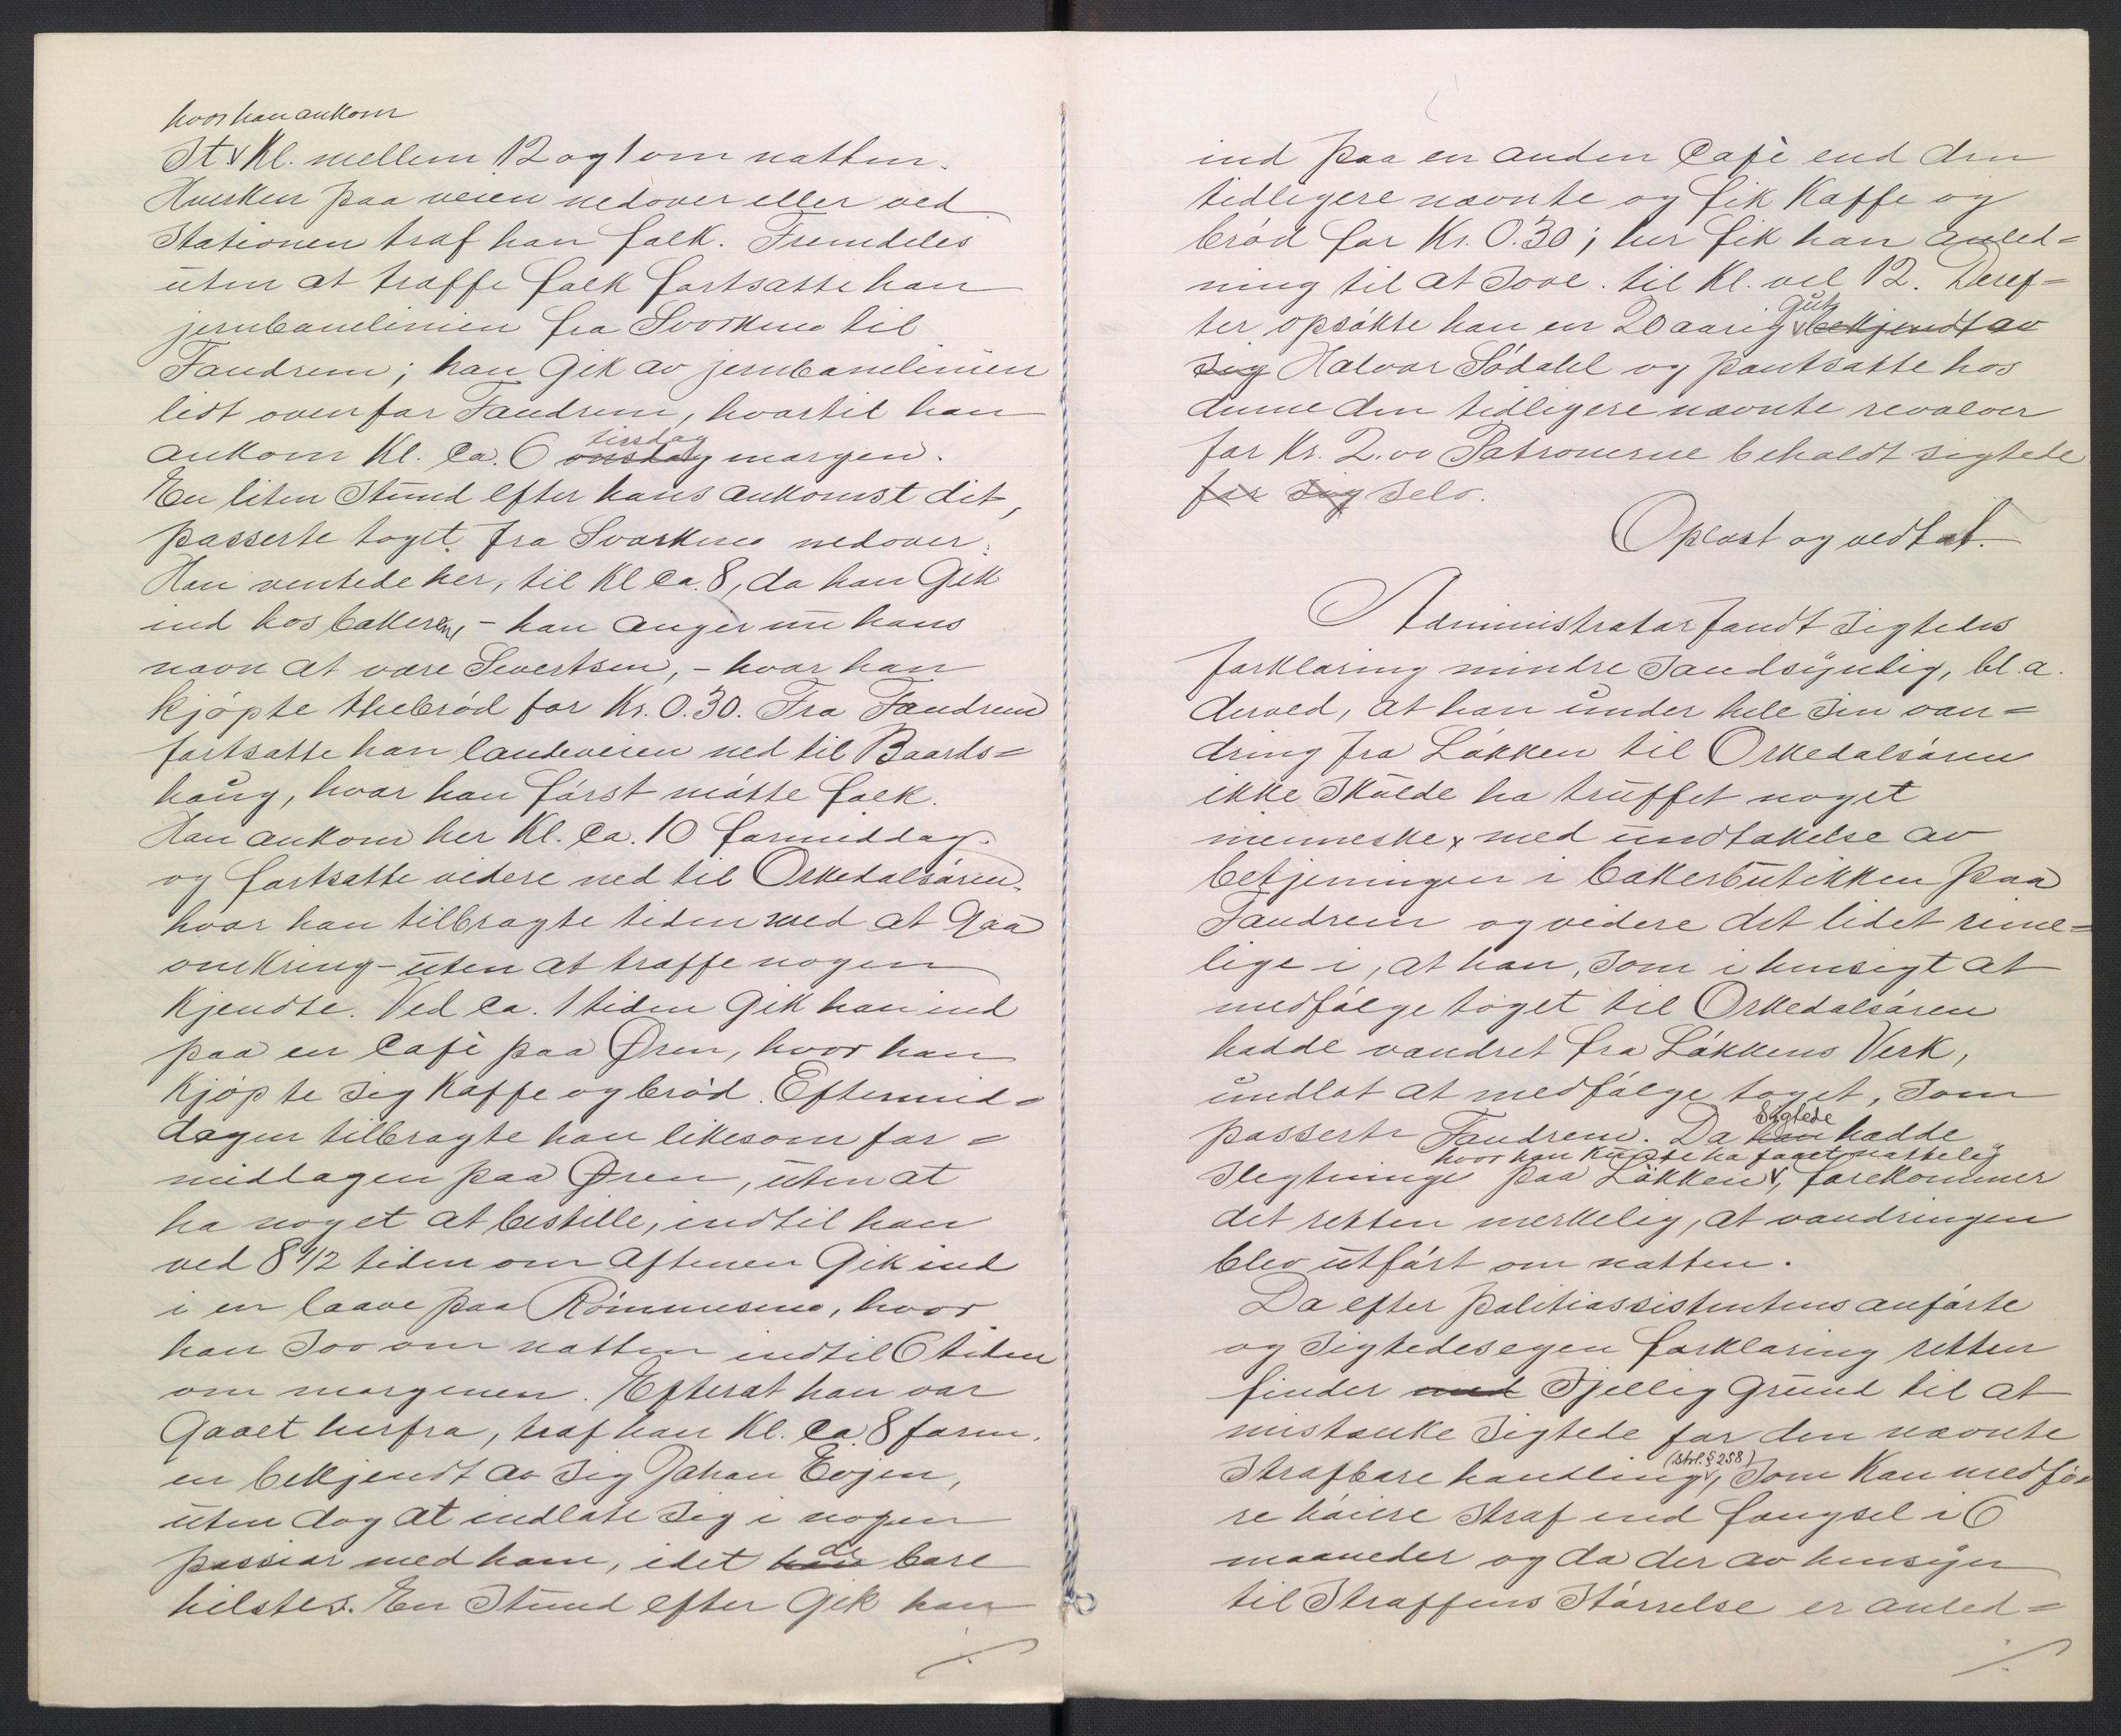 hvor han ankom
St. v Kl. mellem 12 og 1 om natten.
Hverken paa veien nedover eller ved
Stationen traf han folk. Fremdeles
uten at træffe folk fortsatte han
jernbanelinien fra Svorkmo til
Fandrem; han gik av jernbanelinien
lidt ovenfor Fandrem, hvortil han
tirsdag
ankom Kl. ca. 6 onsdag morgen.
En liten stund efter hans ankomst dit,
passerte toget fra Svorkmo nedover.
Han ventede her, til Kl ca. 8, da han gik
ind hos bakeren, - han angir nu hans
navn at være Sivertsen, - hvor han
kjøpte thebrød for Kr. 0.30. Fra Fandrem
fortsatte han landeveien ned til Baards=
haug, hvor han først møtte folk.
Han ankom her Kl. ca. 10 formiddag.
og fortsatte videre ned til Orkedalsøren,
hvor han tilbragte tiden med at gaa
omkring - uten at træffe nogen
kjendte. Ved ca. 1 tiden gik han ind
paa en Cafè paa Øren, hvor han
kjøpte sig kaffe og brød. Eftermid=
dagen tilbragte han likesom for=
middagen paa Øren, uten at
ha noget at bestille, indtil han
ved 8 1/2 tiden om aftenen gik ind
i en laave paa Rømmesmo, hvor
han sov om natten indtil 6 tiden
om morgenen. Efterat han var
gaaet herfra, traf han Kl. ca. 8 form.
en bekjendt av sig Johan Evjen,
uten dog at indlate sig i nogen
de
passiar med ham, idet han bare
hilstes. En stund efter gik han
./.
ind paa en anden Cafè end den
tidligere nævnte og fik kaffe og
brød for Kr. 0.30; her fik han anled=
ning til at sove til Kl. vel 12. Deref=
gut
ter opsøkte han en 20 aarig v bekjendt av
sig Halvor Sødahl og pantsatte hos
denne den tidligere nævnte revolver
for Kr. 2.00 Patronerne beholdt sigtede
for sig selv.
Oplæst og vedtat.
Administrator fandt sigtedes
forklaring mindre sandsynlig, bl.a.
derved, at han under hele sin van=
dring fra Løkken til Orkedalsøren
ikke skulde ha truffet noget
menneske x med undtakelse av
betjeningen i bakerbutikken paa
Fandrem og videre det lidet rime=
lige i, at han, som i hensigt at
medfølge toget til Orkedalsøren
hadde vandret fra Løkkens Verk,
undlot at medfølge toget, som
Sigtede
passerte Fandrem. Da han hadde
hvor han kunde ha faaet nattelig
slegtninge paa Løkken v, forekommer
det retten merkelig, at vandringen
blev utført om natten.
Da efter politiassistentens anførte
og sigtedes egen forklaring retten
finder med skjellig grund til at
mistænke sigtede for den nævnte
(strl. § 258)
strafbare handling v, som kan medfø=
re høiere straf end fængsel i 6
maaneder og da der av hensyn
til straffens størrelse er anled=
./.